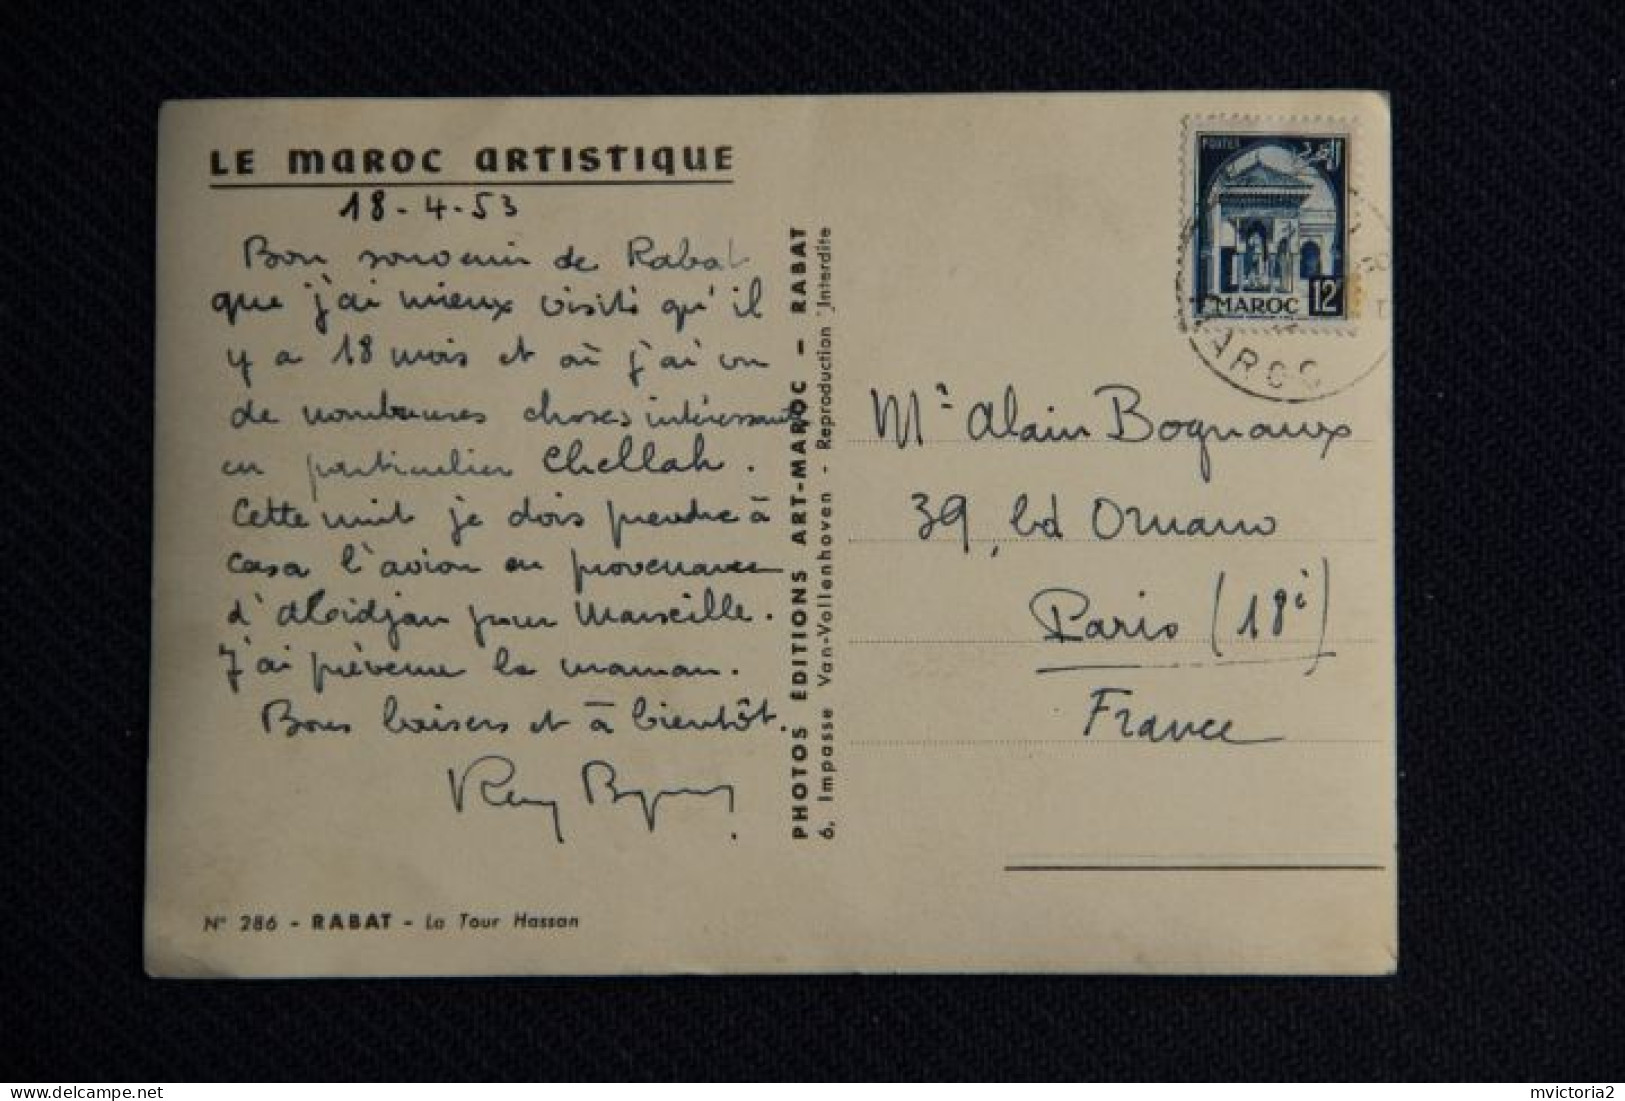 LE MAROC ARTISTIQUE
18-4-53
Bon souvenir de Rabat
que j'ai mieux visité qu'il
y a 18 mois et où j'ai vu
de nombreuses choses intéressantes
en particulier Chellah.
Cette nuit je dois prendre à
casa l'avion en provenance
d'Abidjan pour Marseille.
J'ai prévenu la maman.
Bons baisers et à bientôt.
N° 286 - RABAT - La Tour Hassan
PHOTOS ÉDITIONS ART-MAROC - RABAT
6, Impasse Van-Vollenhoven - Reproduction Interdite
POSTES
المغرب
MAROC 12F
MAROC
Mr Alain Bognaux
39, bd Ornano
Paris (18è)
France
mvictoria2